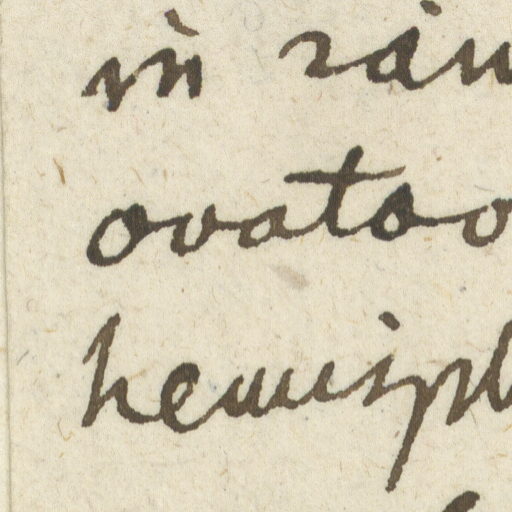 in ram
ovatao
hemisph